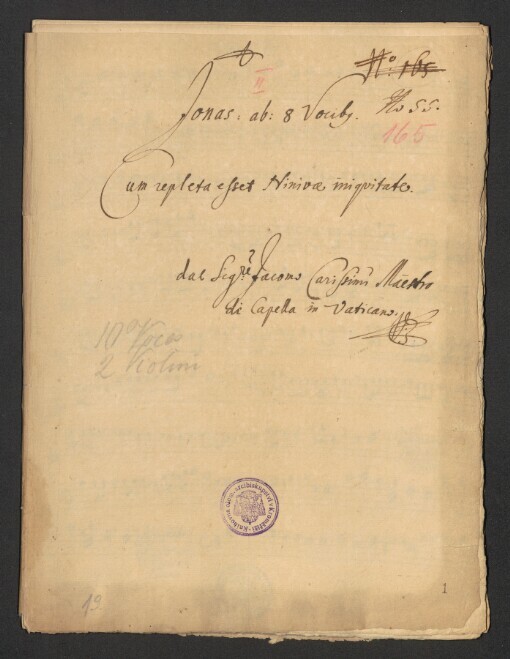 No 165
II
Jonas: ab: 8 Vocibȝ. No 55.
165
Cum repleta esset Ninivæ iniqvitate.
dal Sigre Jacomo Carissimi Maestro
di Capella in Vaticano.
10 Voces
2 Violini
12
1